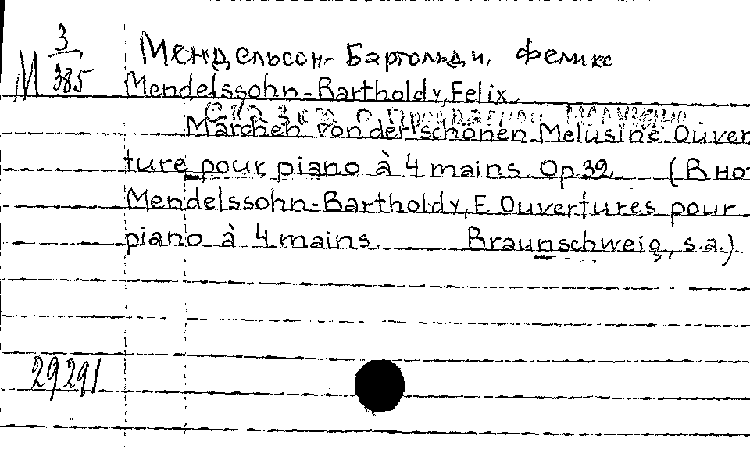 М 3/385
Мендельсон-Бартольди, Феликс
Mendelssohn-Bartholdy, Felix.
Сказка о прекрасной Мелузине
Märchen von der schönen Melusine Ouver
ture pour piano à 4 mains. Op 32. (В но
Mendelssohn-Bartholdy, F. Ouvertures pour
piano à 4 mains. Braunschweig, s.a.)
29291